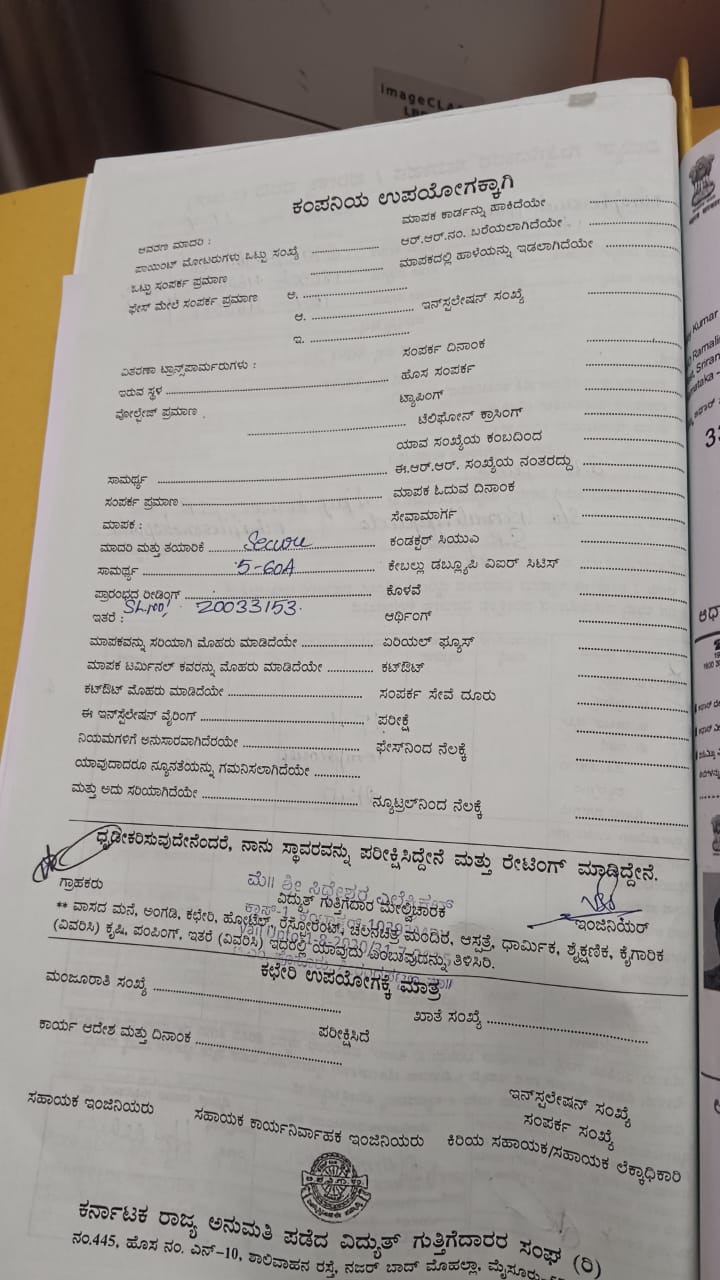 imageCLA
ಕಂಪನಿಯ ಉಪಯೋಗಕ್ಕಾಗಿ
ಆವರಣ ಮಾದರಿ :
ಮಾಪಕ ಕಾರ್ಡನ್ನು ಹಾಕಿದೆಯೇ ....................
ಪಾಯಿಂಟ್ ಮೋಟರುಗಳು ಒಟ್ಟು ಸಂಖ್ಯೆ ....................
ಆರ್.ಆರ್.ನಂ. ಬರೆಯಲಾಗಿದೆಯೇ ....................
ಒಟ್ಟು ಸಂಪರ್ಕ ಪ್ರಮಾಣ ....................
ಮಾಪಕದಲ್ಲಿ ಹಾಳೆಯನ್ನು ಇಡಲಾಗಿದೆಯೇ ....................
ಫೇಸ್ ಮೇಲೆ ಸಂಪರ್ಕ ಪ್ರಮಾಣ ಅ. ....................
ಆ. .................... ಇನ್‌ಸ್ಪಲೇಷನ್ ಸಂಖ್ಯೆ ....................
ಇ. ....................
ಸಂಪರ್ಕ ದಿನಾಂಕ ....................
ವಿತರಣಾ ಟ್ರಾನ್ಸ್‌ಪಾರ್ಮರುಗಳು :
ಹೊಸ ಸಂಪರ್ಕ ....................
ಇರುವ ಸ್ಥಳ ....................
ಟ್ಯಾಪಿಂಗ್ ....................
ವೋಲ್ಟೇಜ್ ಪ್ರಮಾಣ ....................
ಟೆಲಿಫೋನ್ ಕ್ರಾಸಿಂಗ್ ....................
ಯಾವ ಸಂಖ್ಯೆಯ ಕಂಬದಿಂದ ....................
ಸಾಮರ್ಥ್ಯ ....................
ಈ.ಆರ್.ಆರ್. ಸಂಖ್ಯೆಯ ನಂತರದ್ದು ....................
ಸಂಪರ್ಕ ಪ್ರಮಾಣ ....................
ಮಾಪಕ ಓದುವ ದಿನಾಂಕ ....................
ಮಾಪಕ :
ಸೇವಾಮಾರ್ಗ ....................
ಮಾದರಿ ಮತ್ತು ತಯಾರಿಕೆ .......... Secure
ಕಂಡಕ್ಟರ್ ಸಿಯುಎ ....................
ಸಾಮರ್ಥ್ಯ .......... 5-60A
ಕೇಬಲ್ಲು ಡಬ್ಲ್ಯೂಪಿ ವಿಐರ್ ಸಿಟಿಸ್ ....................
ಪ್ರಾರಂಭದ ರೀಡಿಂಗ್ ....................
ಕೊಳವೆ ....................
ಇತರೆ : SL.no! 20033153.
ಆರ್ಥಿಂಗ್ ....................
ಮಾಪಕವನ್ನು ಸರಿಯಾಗಿ ಮೊಹರು ಮಾಡಿದೆಯೇ ..........
ಏರಿಯಲ್ ಫ್ಯೂಸ್ ....................
ಮಾಪಕ ಟರ್ಮಿನಲ್ ಕವರನ್ನು ಮೊಹರು ಮಾಡಿದೆಯೇ ..........
ಕಟ್‌ಔಟ್ ....................
ಕಟ್‌ಔಟ್ ಮೊಹರು ಮಾಡಿದೆಯೇ ....................
ಸಂಪರ್ಕ ಸೇವೆ ದೂರು ....................
ಈ ಇನ್‌ಸ್ಟೆಲೇಷನ್ ವೈರಿಂಗ್ ....................
ಪರೀಕ್ಷೆ ....................
ನಿಯಮಗಳಿಗೆ ಅನುಸಾರವಾಗಿದೆರಯೇ ....................
ಫೇಸ್‌ನಿಂದ ನೆಲಕ್ಕೆ ....................
ಯಾವುದಾದರೂ ನ್ಯೂನತೆಯನ್ನು ಗಮನಿಸಲಾಗಿದೆಯೇ ..........
ಮತ್ತು ಅದು ಸರಿಯಾಗಿದೆಯೇ ....................
ನ್ಯೂಟ್ರಲ್‌ನಿಂದ ನೆಲಕ್ಕೆ ....................
ಧೃಡೀಕರಿಸುವುದೇನೆಂದರೆ, ನಾನು ಸ್ಥಾವರವನ್ನು ಪರೀಕ್ಷಿಸಿದ್ದೇನೆ ಮತ್ತು ರೇಟಿಂಗ್ ಮಾಡಿದ್ದೇನೆ.
ಮೆ॥ ಶ್ರೀ ಸಿದ್ದೇಶ್ವರ ಎಲೆಕ್ಟ್ರಿಕಲ್ಸ್
ಗ್ರಾಹಕರು
ವಿದ್ಯುತ್ ಗುತ್ತಿಗೆದಾರ ಮೇಲ್ವಿಚಾರಕ
ಇಂಜಿನಿಯರ್
** ವಾಸದ ಮನೆ, ಅಂಗಡಿ, ಕಛೇರಿ, ಹೋಟೆಲ್, ರೆಸ್ಟೋರೆಂಟ್, ಚಲನಚಿತ್ರ ಮಂದಿರ, ಆಸ್ಪತ್ರೆ, ಧಾರ್ಮಿಕ, ಶೈಕ್ಷಣಿಕ, ಕೈಗಾರಿಕ
(ವಿವರಿಸಿ) ಕೃಷಿ, ಪಂಪಿಂಗ್, ಇತರೆ (ವಿವರಿಸಿ) ಇದರಲ್ಲಿ ಯಾವುದು ಎಂಬುವುದನ್ನು ತಿಳಿಸಿರಿ.
ಕಛೇರಿ ಉಪಯೋಗಕ್ಕೆ ಮಾತ್ರ
ಮಂಜೂರಾತಿ ಸಂಖ್ಯೆ ....................
ಖಾತೆ ಸಂಖ್ಯೆ ....................
ಕಾರ್ಯ ಆದೇಶ ಮತ್ತು ದಿನಾಂಕ ....................
ಪರೀಕ್ಷಿಸಿದೆ
ಇನ್‌ಸ್ಪಲೇಷನ್ ಸಂಖ್ಯೆ
ಸಂಪರ್ಕ ಸಂಖ್ಯೆ
ಸಹಾಯಕ ಇಂಜಿನಿಯರು
ಸಹಾಯಕ ಕಾರ್ಯನಿರ್ವಾಹಕ ಇಂಜಿನಿಯರು
ಕಿರಿಯ ಸಹಾಯಕ/ಸಹಾಯಕ ಲೆಕ್ಕಾಧಿಕಾರಿ
ಕರ್ನಾಟಕ ರಾಜ್ಯ ಅನುಮತಿ ಪಡೆದ ವಿದ್ಯುತ್ ಗುತ್ತಿಗೆದಾರರ ಸಂಘ (ರಿ)
ನಂ.445, ಹೊಸ ನಂ. ಎನ್-10, ಶಾಲಿವಾಹನ ರಸ್ತೆ, ನಜರ್ ಬಾದ್ ಮೊಹಲ್ಲಾ, ಮೈಸೂರು
Kumar
Ramalin
Sriran